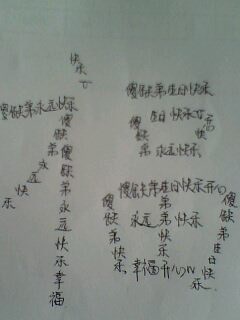 快乐
傻缺弟永远快乐
傻缺弟傻缺弟永远快乐幸福
永远快乐
傻缺弟生日快乐
生日快乐
傻缺
快乐
弟永远快乐
傻缺弟生日快乐开心
傻缺弟快乐
弟
永远弟快乐
快乐
幸福开心
傻缺弟生日快乐